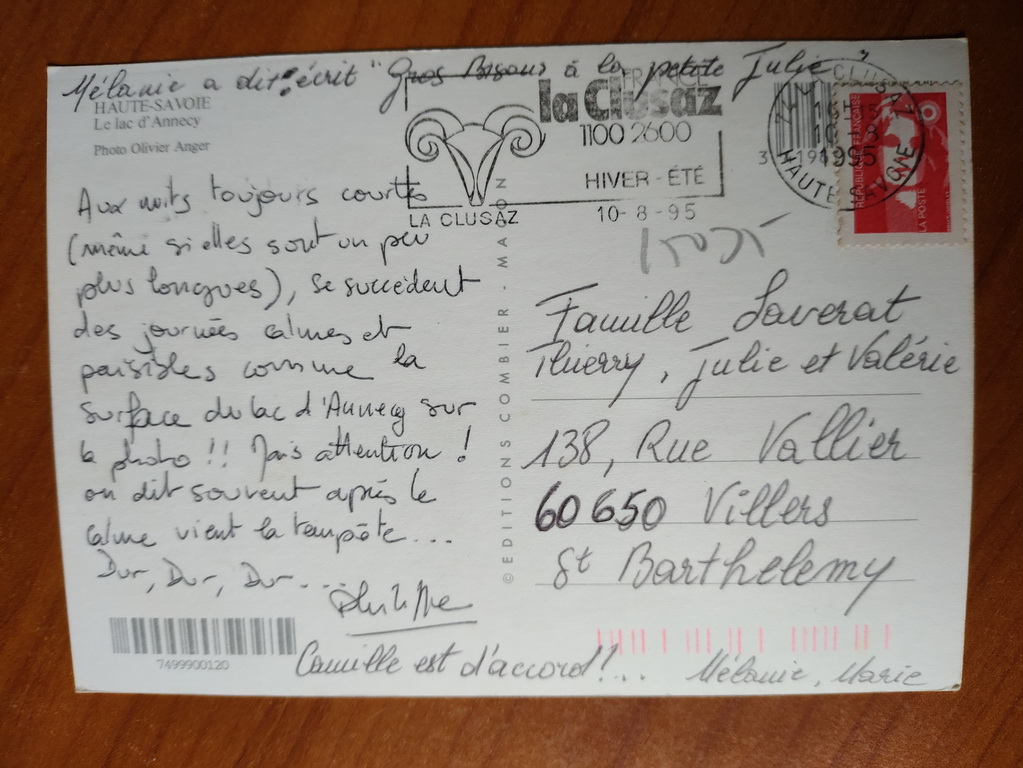 Mélanie a dit : écrit "Gros Bisous à la petite Julie"
HAUTE-SAVOIE
Le lac d'Annecy
Photo Olivier Anger
la Clusaz
1100 2600
HIVER - ÉTÉ
LA CLUSAZ
10-8-95
1995
HAUTE-SAVOIE
RÉPUBLIQUE FRANÇAISE
LA POSTE
Aux nuits toujours courtes
(même si elles sont un peu
plus longues), se succèdent
des journées calmes et
paisibles comme la
surface du lac d'Annecy sur
la photo !! Mais attention !
on dit souvent après le
calme vient la tempête...
Dur, Dur, Dur...
Philippe
Camille est d'accord!...
Mélanie, Marie
© EDITIONS COMBIER - MACON
Famille Saverat
Thierry, Julie et Valérie
138, Rue Vallier
60650 Villers
St Barthelemy
7499900120